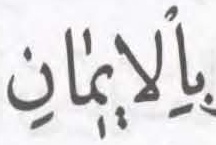 بِاْلاِيْمَانِ